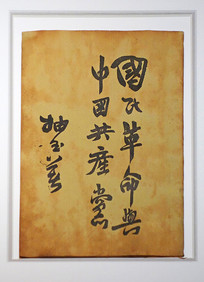 國民革命與
中國共產黨